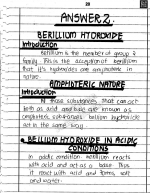 20
ANSWER 2.
BERILLIUM HYDROXIDE
Introduction
Berillium is the member of group 2
family. This is the exception of berillium
that it's hydroxides are amphoteric in
nature.
AMPHOTERIC NATURE
Introduction
All those substances that can act
both as acid and base are known as
amphoteric substances. berillium hydroxide
act in the same way.
• BERILLIUM HYDROXIDE IN ACIDIC
CONDITIONS
In acidic condition berillium reacts
with acid and act as a base. Thus
it react with acid and forms salt
and water.